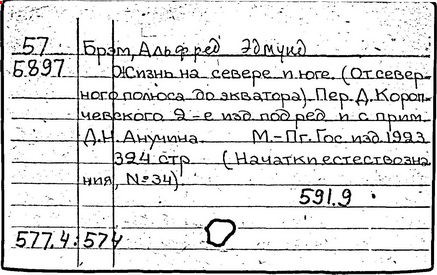 57 Брэм, Альфред Эдмунд
Б897 Жизнь на севере и юге. (От север-
ного полюса до экватора). Пер. Д. Короп-
чевского 2-е изд. под ред. и с прим.
Д.Н. Анучина. М.-Пг. Гос. изд. 1923
324 стр (Начатки естествозна-
ния, №34).
591.9
577.4:574